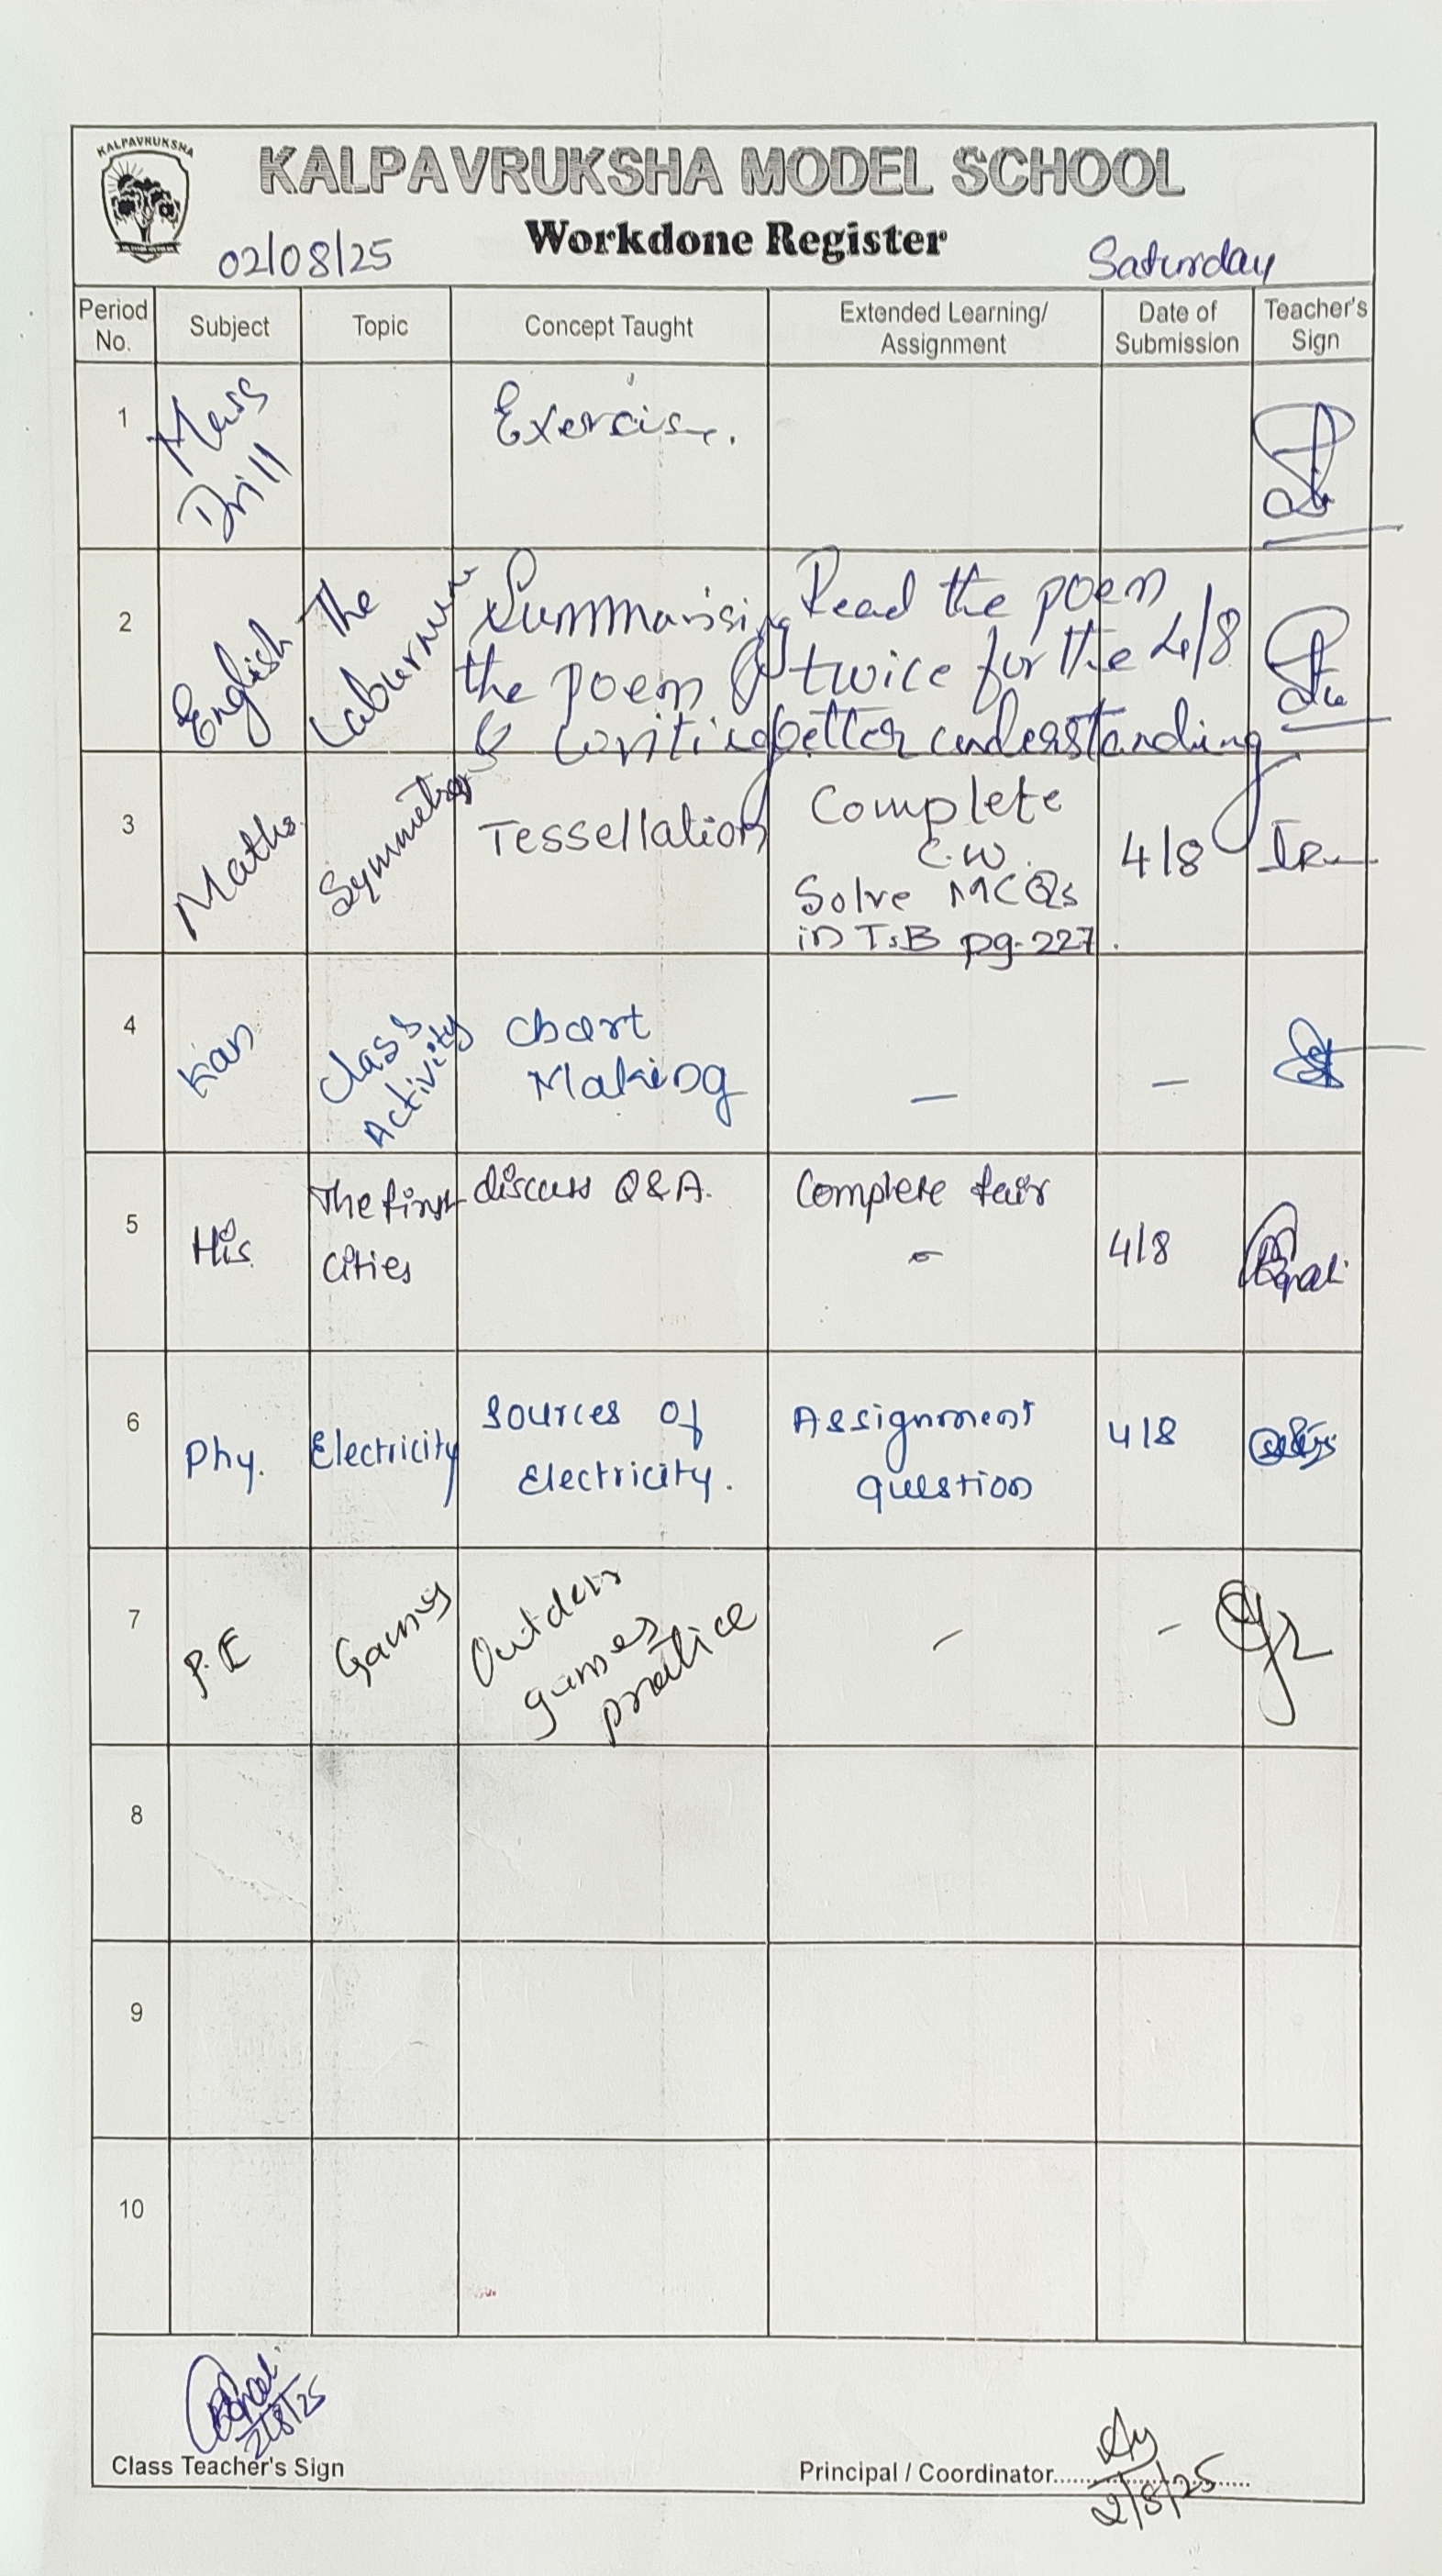 KALPAVRUKSHA
KALPAVRUKSHA MODEL SCHOOL
Workdone Register
02/08/25
Saturday
Period No.
Subject
Topic
Concept Taught
Extended Learning/
Assignment
Date of
Submission
Teacher's
Sign
1
Mass
Drill
Exercise.
2
English
The
Laburnum
Summarising
the poem
& writing
Read the poem
twice for the
better understanding
4/8
3
Maths
Symmetry
Tessellation
Complete
C.W.
Solve MCQs
in T.B pg-227.
4/8
4
Kan
Class
Activity
Chart
Making
—
—
5
His
The first
cities
discuss Q&A.
Complete fair
4/8
6
Phy.
Electricity
Sources of
Electricity.
Assignment
question
4/8
7
P.E
Games
Outdoor
games
practice
–
–
8
9
10
2/8/25
Class Teacher's Sign
Principal / Coordinator
2/8/25